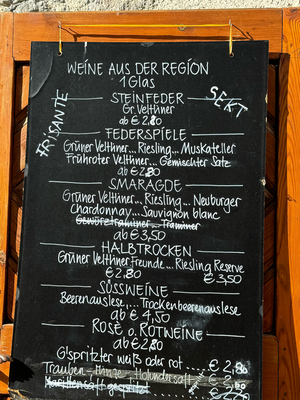 WEINE AUS DER REGION
1 Glas
FRISANTE
SEKT
STEINFEDER
Gr. Veltliner
ab € 2,80
FEDERSPIELE
Grüner Veltliner... Riesling... Muskateller
Frühroter Veltliner... Gemischter Satz
ab € 2,80
SMARAGDE
Grüner Veltliner... Riesling... Neuburger
Chardonnay... Sauvignon blanc
Gewürztraminer ... Traminer
ab € 3,50
HALBTROCKEN
Grüner Veltliner Freunde... Riesling Reserve
€ 2,80 € 3,50
SÜSSWEINE
Beerenauslese,... Trockenbeerenauslese
ab € 4,50
ROSÉ o. ROTWEINE
ab € 2,80
G'spritzter weiß oder rot .... € 2,80
Trauben - Holundersaft
Marillensaft gespritzt